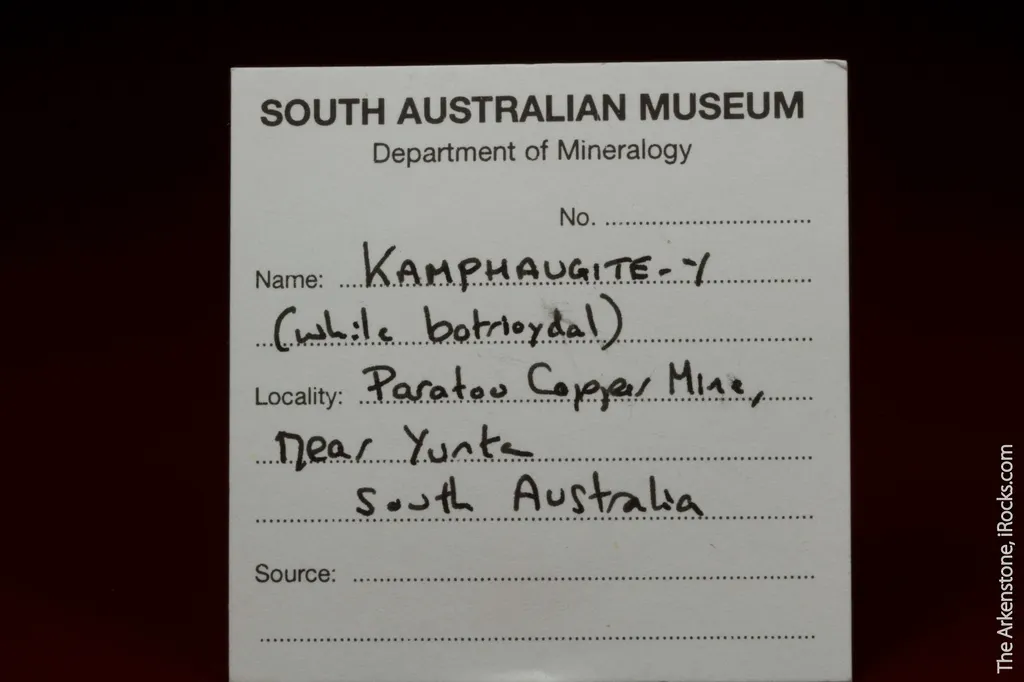 SOUTH AUSTRALIAN MUSEUM
Department of Mineralogy
No. ..............................
Name: KAMPHAUGITE-Y
(white botrioydal)
Locality: Paratoo Copper Mine,
near Yunta
South Australia
Source:
The Arkenstone, iRocks.com